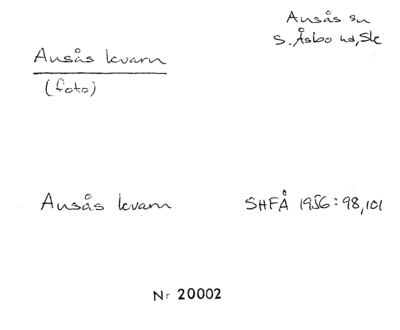 Ausås sn
S. Åsbo hd, Sk
Ausås kvarn
(foto)
Ausås kvarn SHFÅ 1956:98,101
Nr 20002